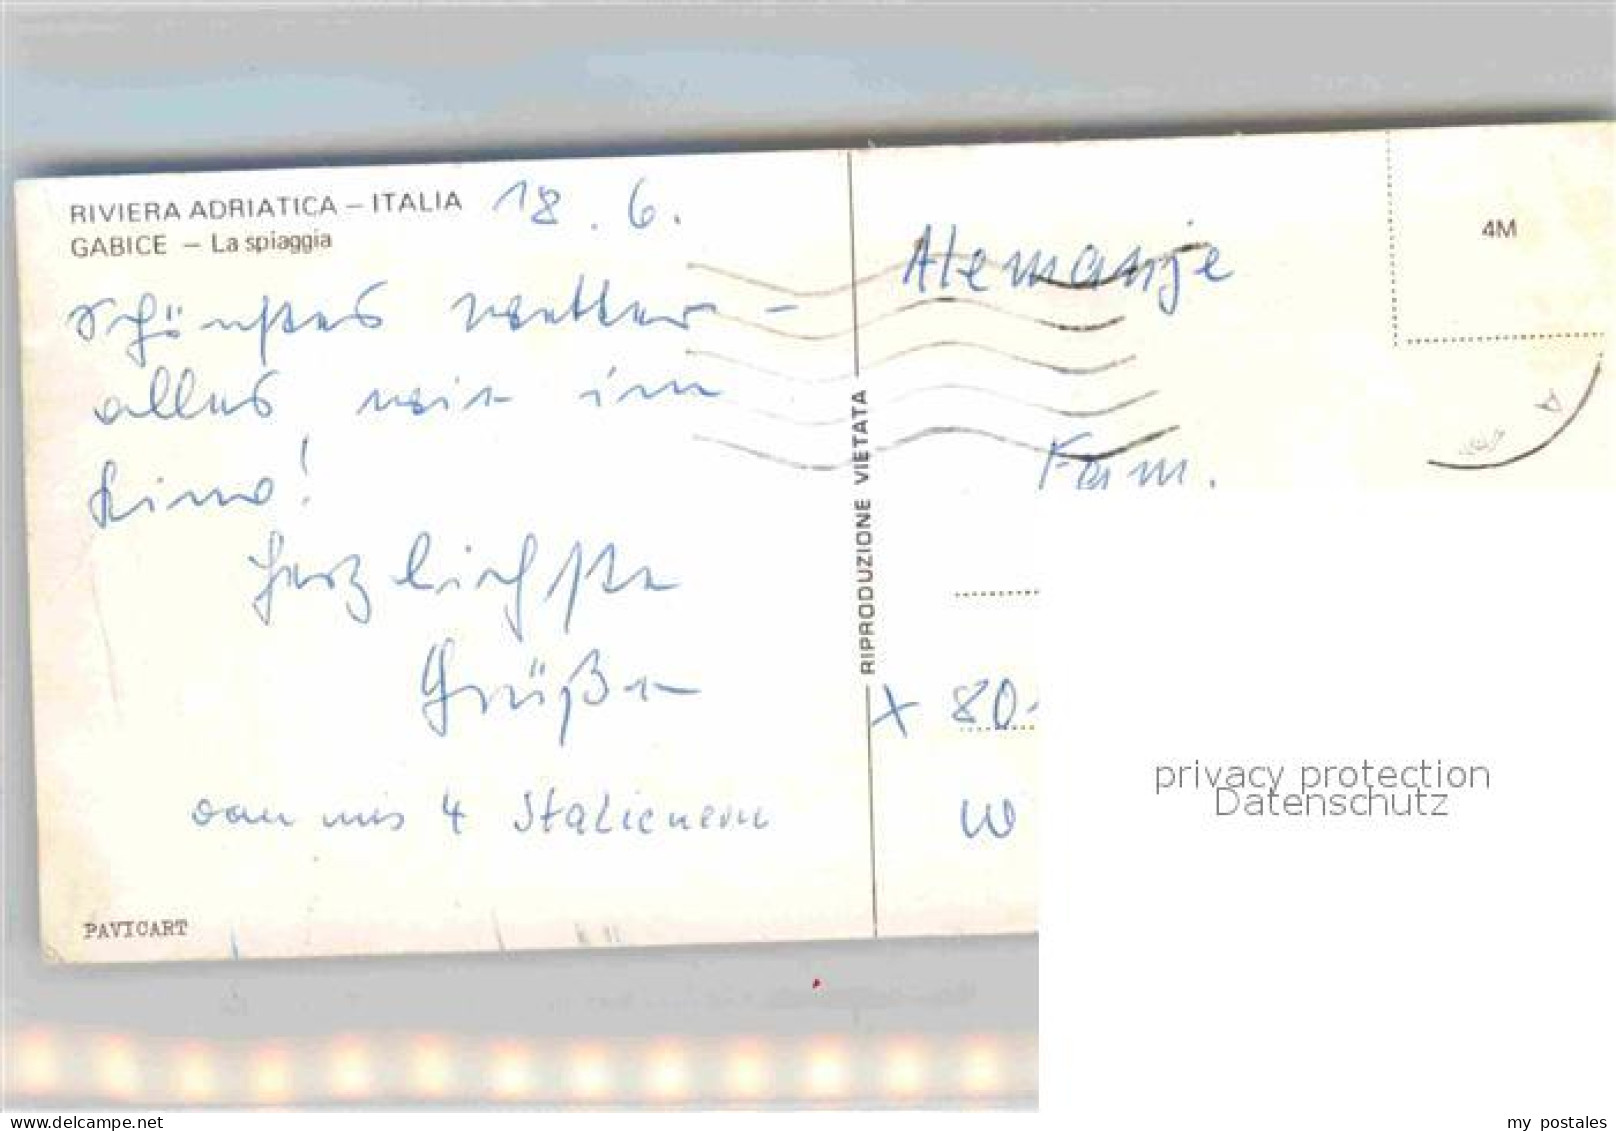 RIVIERA ADRIATICA – ITALIA
GABICE – La spiaggia
18. 6.
Schönstes Wetter –
alles wie im
Kino!
Herzlichste
Grüße
von uns 4 Italienern
PAVICART
RIPRODUZIONE VIETATA
4M
Alemanje
Fam.
X 80
W
privacy protection
Datenschutz
www.delcampe.net
my_postales